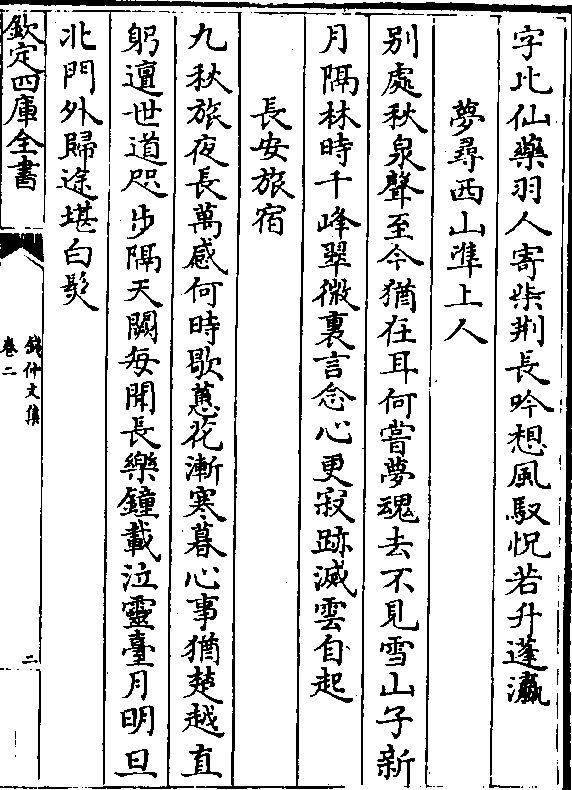 字比仙藥羽人寄柴荆長吟想風馭怳若升蓬瀛
夢尋西山準上人
别處秋泉聲至今猶在耳何嘗夢魂去不見雪山子新
月隔林時千峰翠微裏言念心更寂跡滅雲自起
長安旅宿
九秋旅夜長萬感何時歇蕙花漸寒暮心事猶楚越直
躬邅世道咫步隔天闕每聞長樂鐘載泣靈臺月明旦
北門外歸途堪白髮
欽定四庫全書
錢仲文集
卷二
二